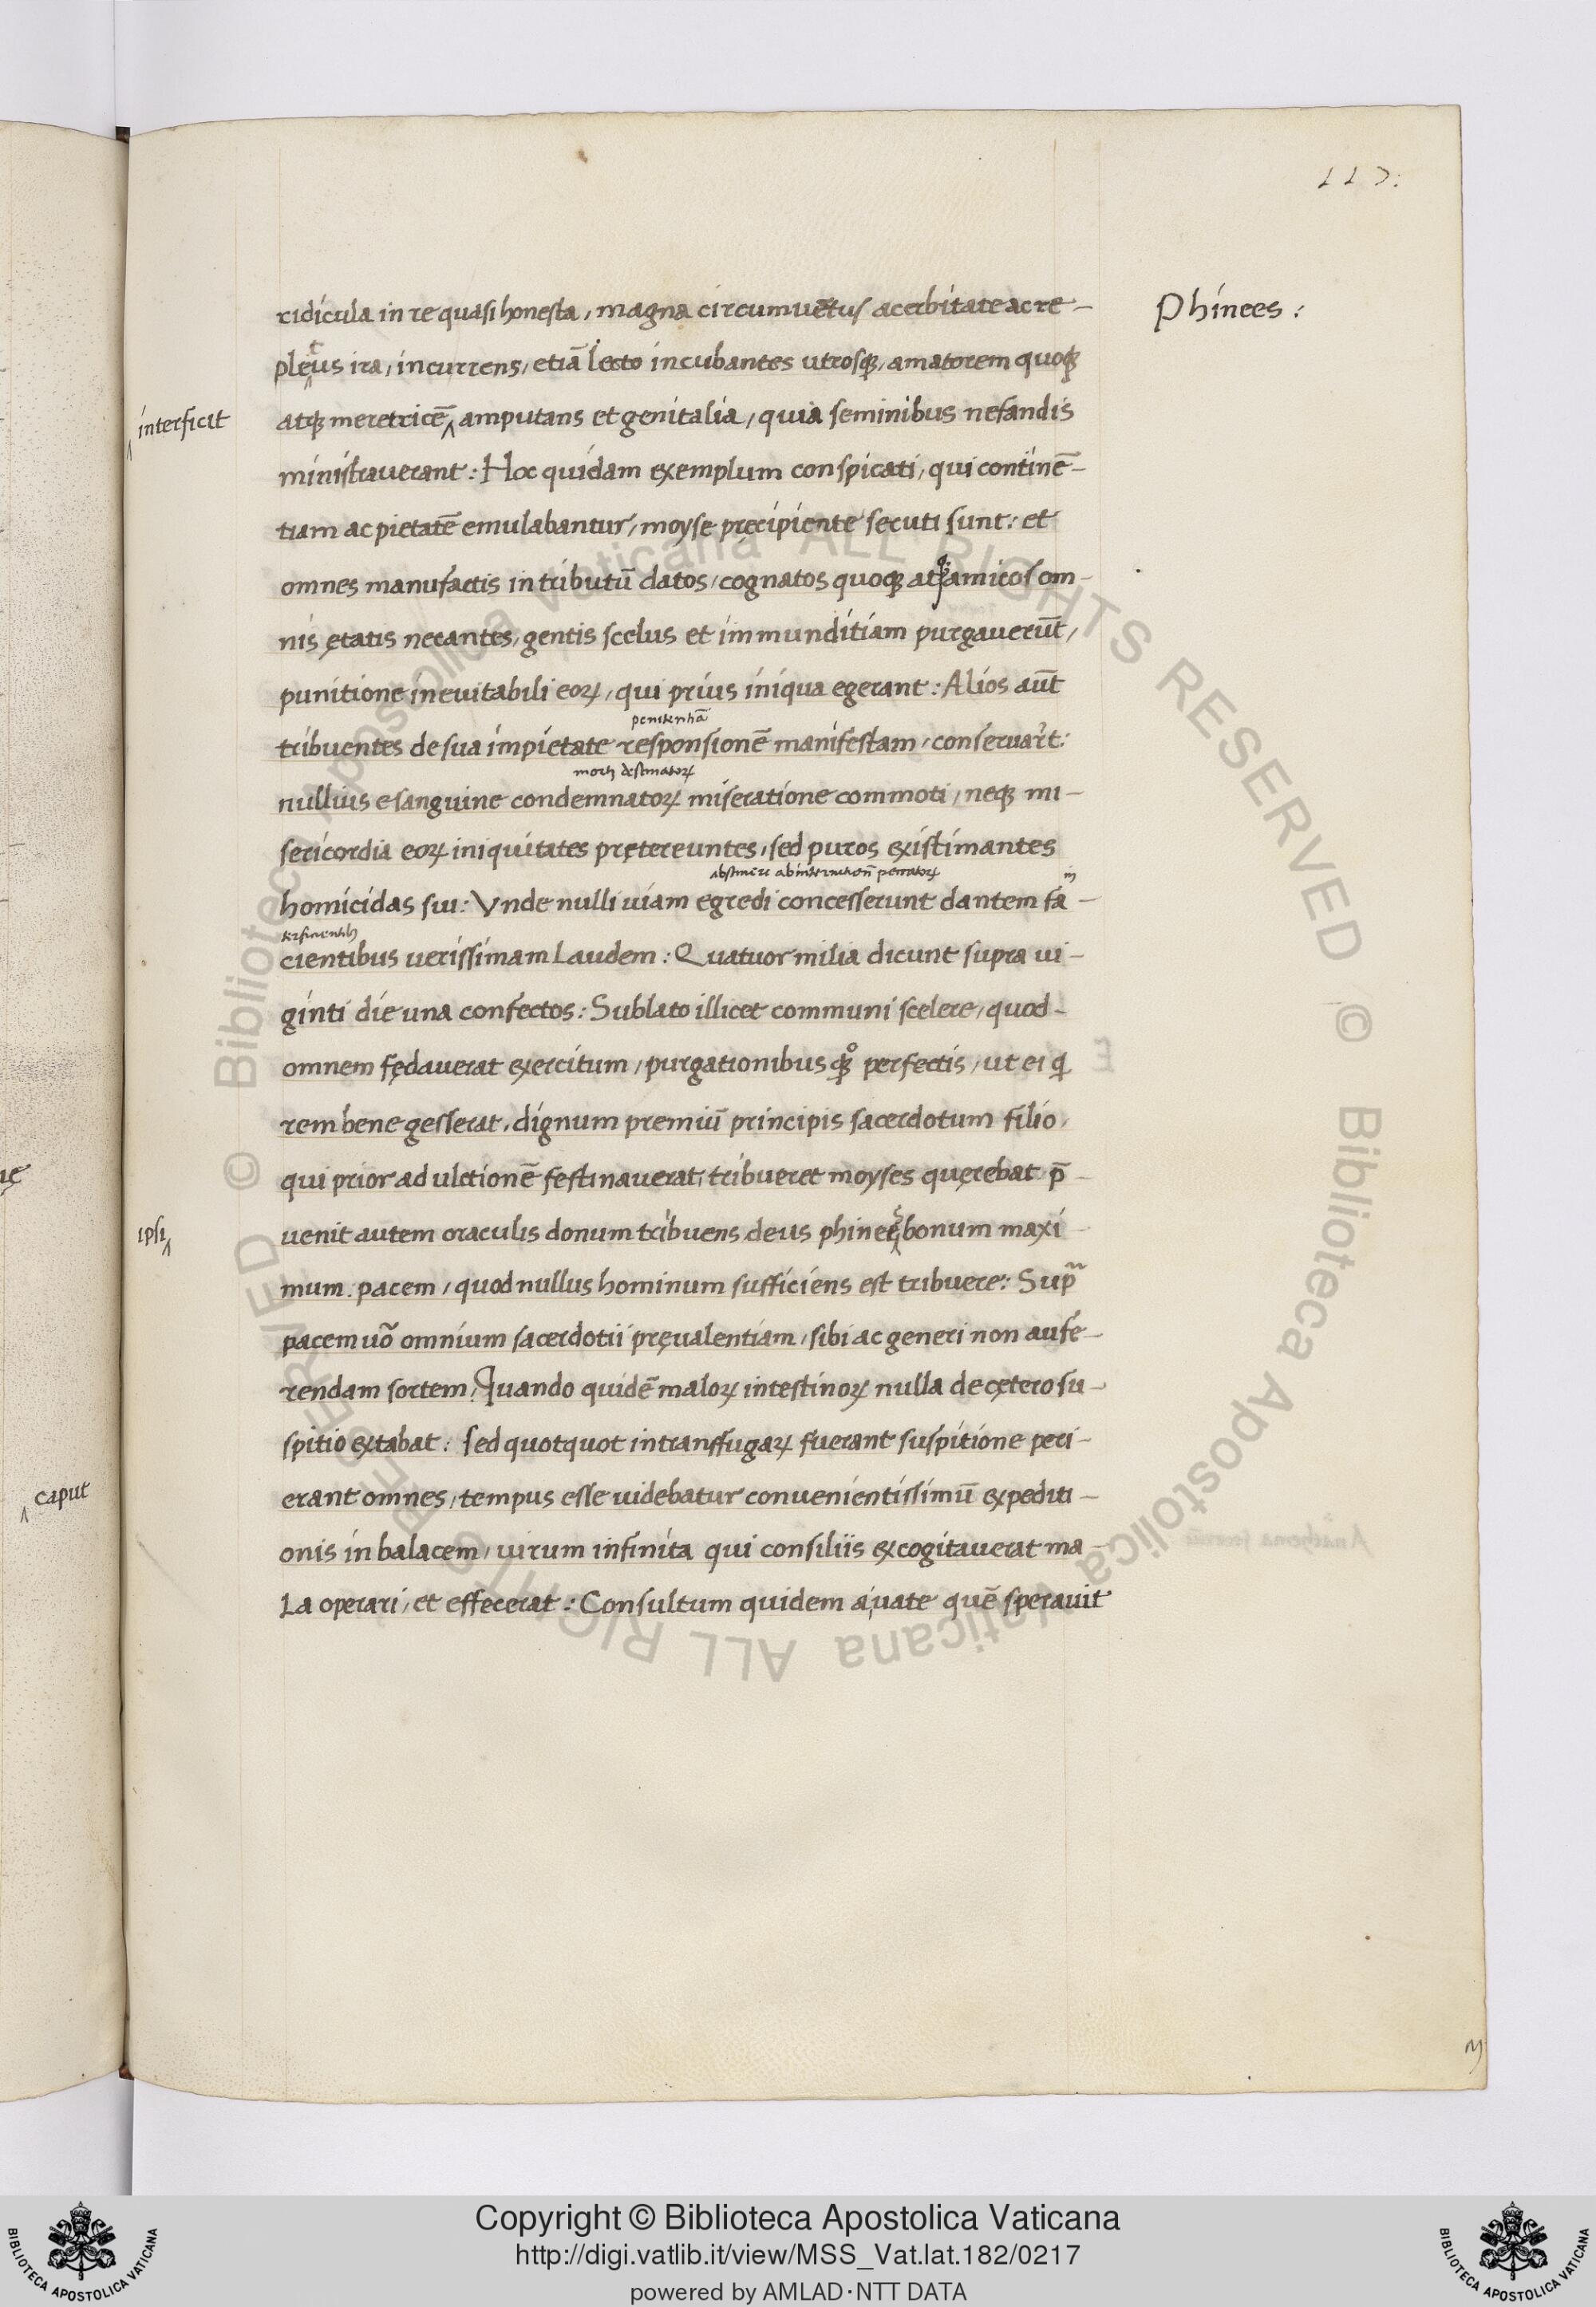 117:
Phinees:
ridicula in re quasi honesta, magna circumuētus acerbitate ac re-
t
pleus ira, incurrens, etiā lecto incubantes utrosqꝫ, amatorem quoqꝫ
interficit
atqꝫ meretricē amputans et genitalia, quia seminibus nefandis
ministrauerant: Hoc quidam exemplum conspicati, qui continē-
tiam ac pietatē emulabantur, moyse pręcipiente secuti sunt: et
omnes manufactis in tributū datos, cognatos quoqꝫ atqꝫ amicos om-
nis ętatis necantes, gentis scelus et immunditiam purgauerūt,
punitione ineuitabili eoꝝ, qui prius iniqua egerant: Alios aūt
penitentiā
tribuentes de sua impietate responsionē manifestam, conseruar̄t:
morti destinatoꝝ
nullius e sanguine condemnatoꝝ miseratione commoti, neqꝫ mi-
sericordia eoꝝ iniquitates pręterereuntes, sed puros existimantes
abstinere ab internetionē
homicidas sui: Vnde nulli uiam egredi concesserunt dantem fa-
cientibus uerissimam laudem: Quatuor milia dicunt supra ui-
ginti die una confectos: Sublato illicet communi scelere, quod
omnem fędauerat exercitum, purgationibus qꝫ perfectis, ut ei q
rem bene gesserat, dignum premiū principis sacerdotum filio,
qui prior ad ultionē festinauerat, tribueret moyses quęrebat p̄-
ipsi
uenit autem oraculis donum tribuens deus phineę bonum maxi
mum. pacem, quod nullus hominum sufficiens est tribuere: Sup
pacem uō omnium sacerdotii pręualentiam, sibi ac generi non aufe-
rendam sortem, Quando quidē maloꝝ intestinoꝝ nulla de cętero su-
spitio extabat: sed quotquot in transfugaꝝ fuerant suspitione peri-
caput
erant omnes, tempus esse uidebatur conuenientissimū expediti-
onis in balacem, uirum infinita qui consiliis excogitauerat ma-
la operari, et effecerat: Consultum quidem a uate quē sperauit
Copyright © Biblioteca Apostolica Vaticana
http://digi.vatlib.it/view/MSS_Vat.lat.182/0217
powered by AMLAD·NTT DATA
BIBLIOTECA APOSTOLICA VATICANA
BIBLIOTECA APOSTOLICA VATICANA
© Biblioteca Apostolica Vaticana ALL RIGHTS RESERVED © Biblioteca Apostolica Vaticana ALL RIGHTS RESERVED